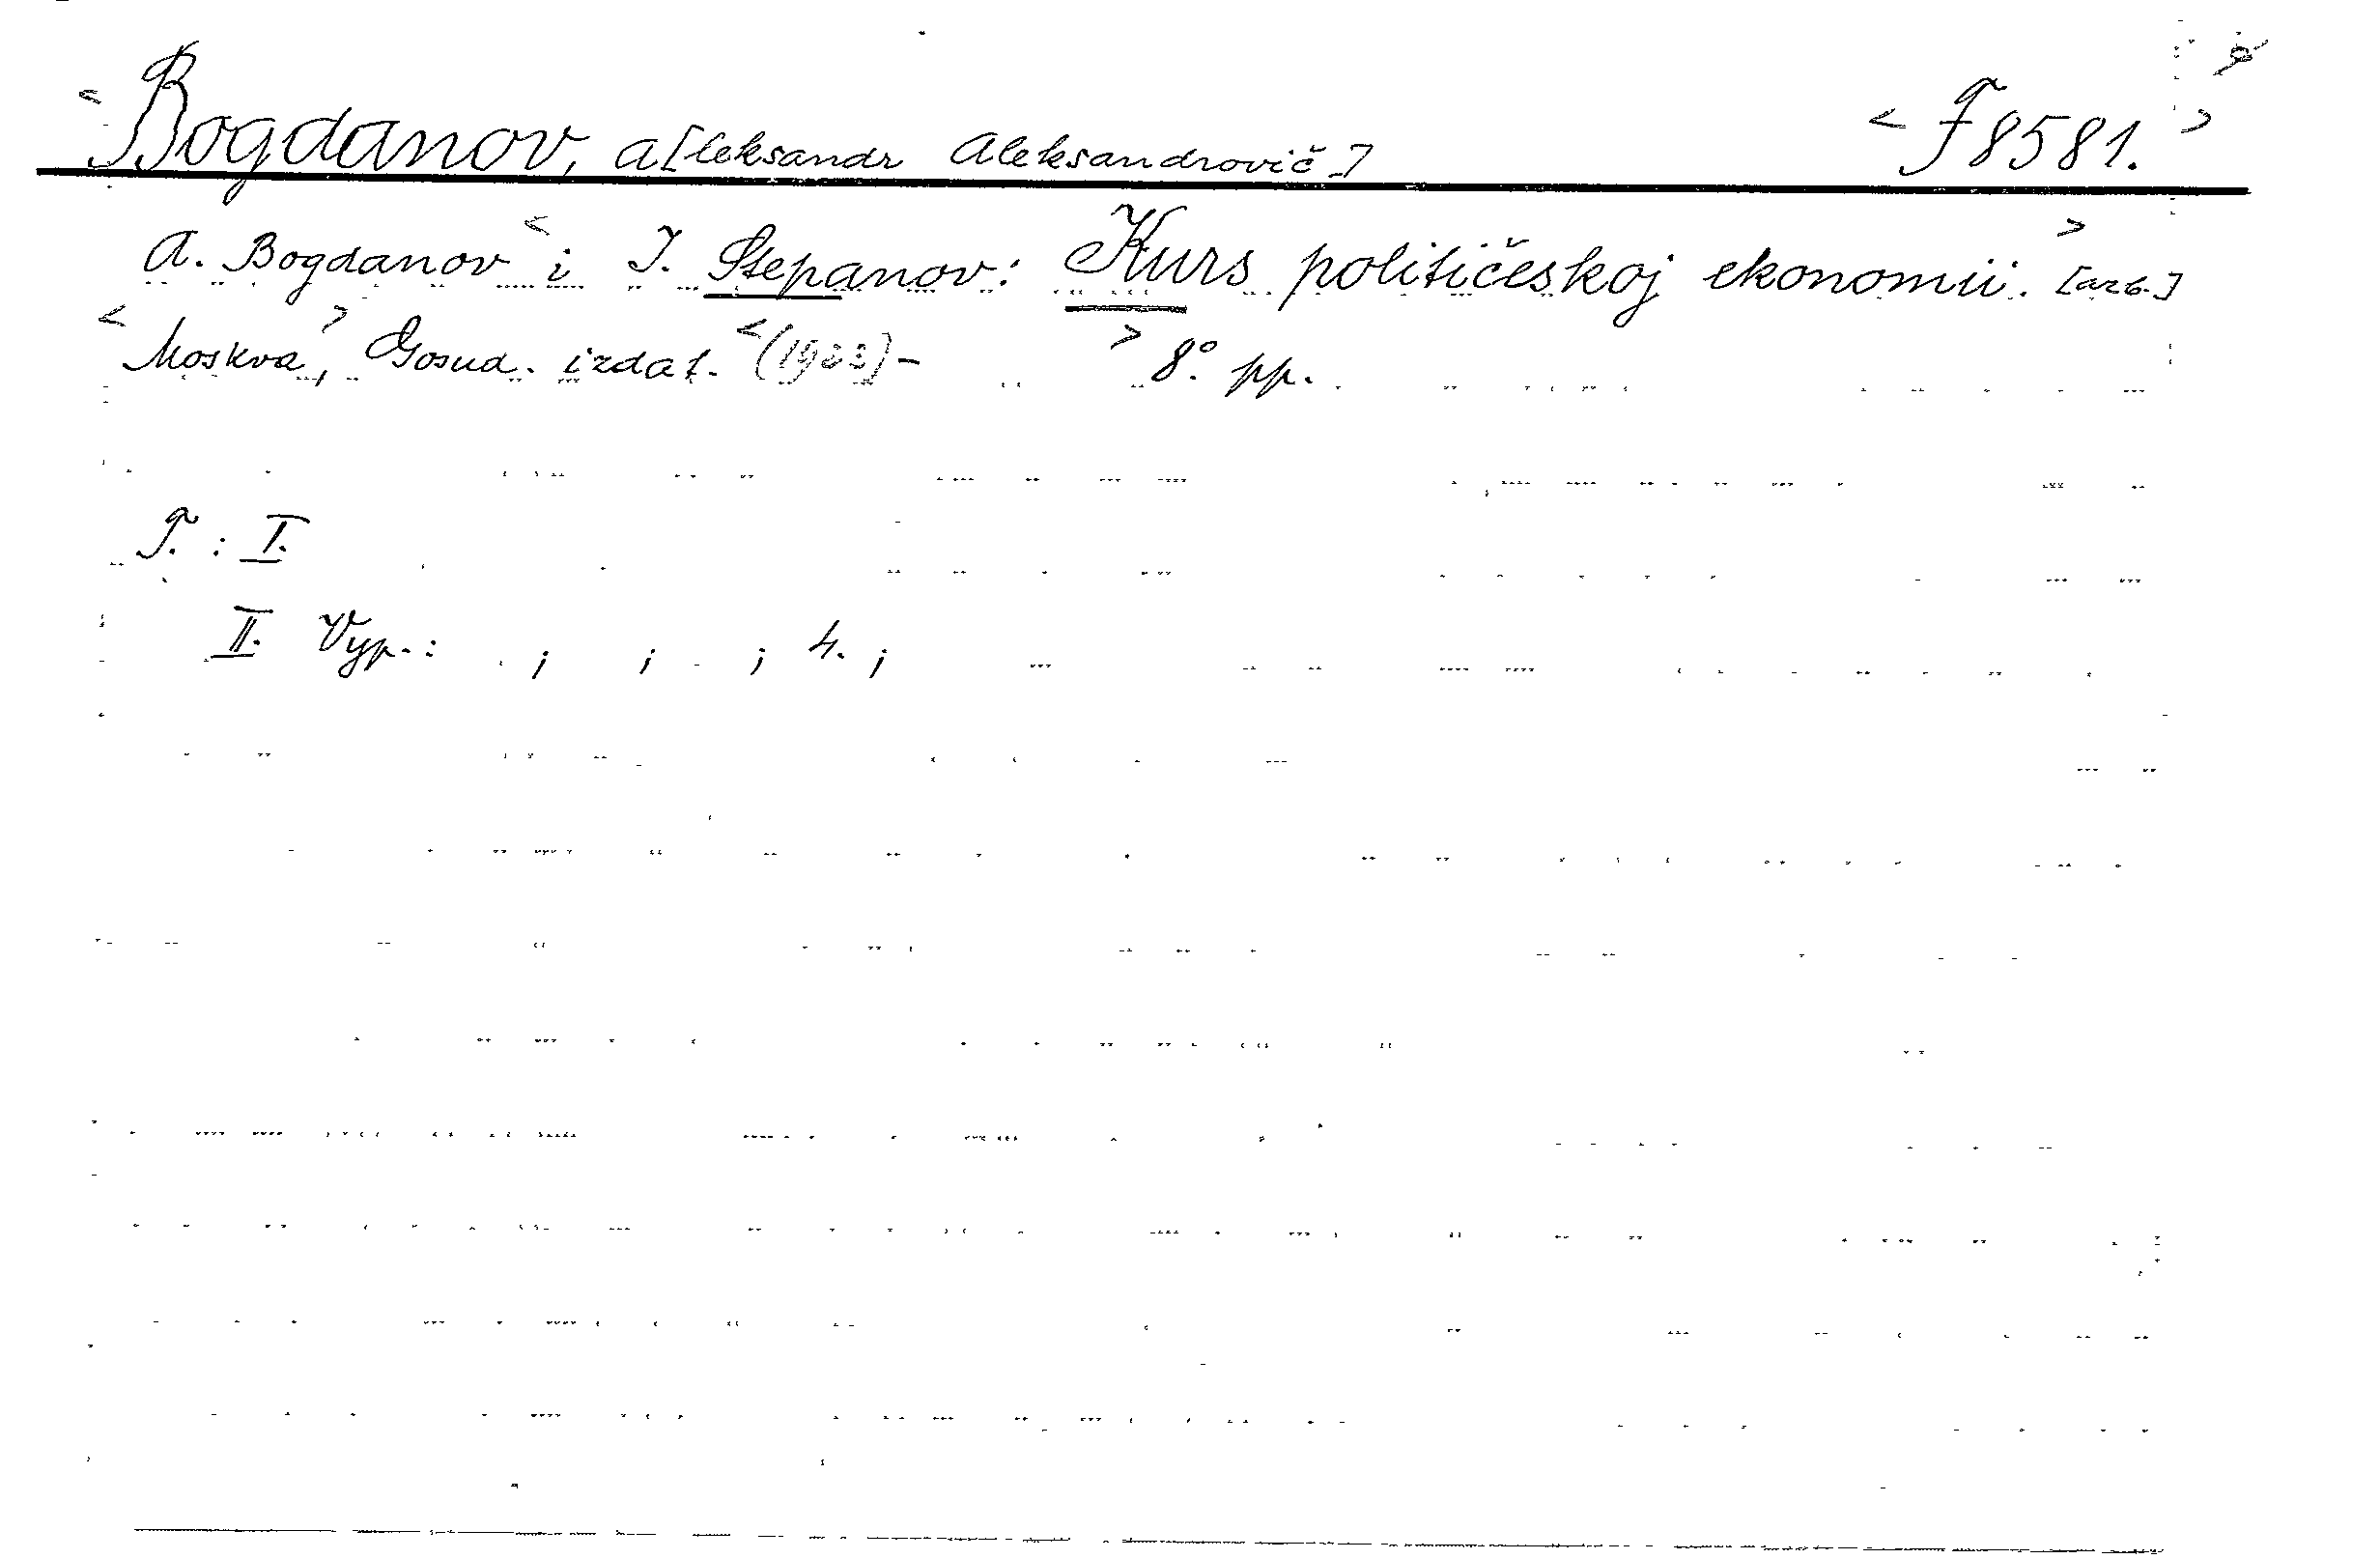 Bogdanov, A[leksandr Aleksandrovič] F8581.
A. Bogdanov i I. Stepanov: Kurs političeskoj ekonomii.
Moskva, Gosud. izdat. 8°. pp.
T.: I.
II. Vyp.: ; ; ; 4. ;